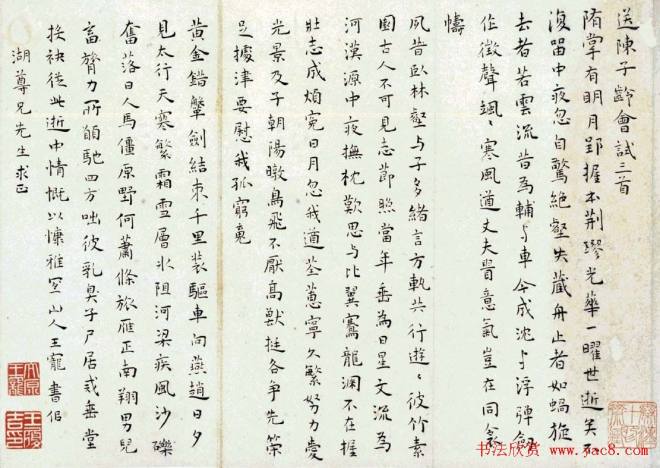 送陳子齡會試三首
隋掌有明月郢握本荆璆光華一曜世逝矣不
復留中夜忽自驚絶壑失藏舟止者如蝸旋
去者若雲流昔為輔与車今成沈与浮彈劍
作徵聲颯〻寒風遒丈夫貴意氣豈在同衾
幬
夙昔臥林壑与子多緒言方軌共行遊〻彼竹素
園古人不可見志節照當年垂為日星文流為
河漢源中夜撫枕歎思与比翼騫龍淵不在握
壯志成煩寃日月忽我遒荃蕙寧久繁努力愛
光景及子朝陽暾鳥飛不厭高獸挺各争先策
足據津要慰我孤窮
黄金錯擎劍結束千里装驅車向燕趙日夕
見太行天寒繁霜雪層冰阻河梁疾風沙礫
奮落日人馬僵原野何蕭條旅雁正南翔男兒
富膂力所願馳四方咄彼乳臭子尸居戒垂堂
挾袂従此逝中情慨以慷雅宜山人王寵書伯
湖尊兄先生求正
书法欣赏 www.yac8.com